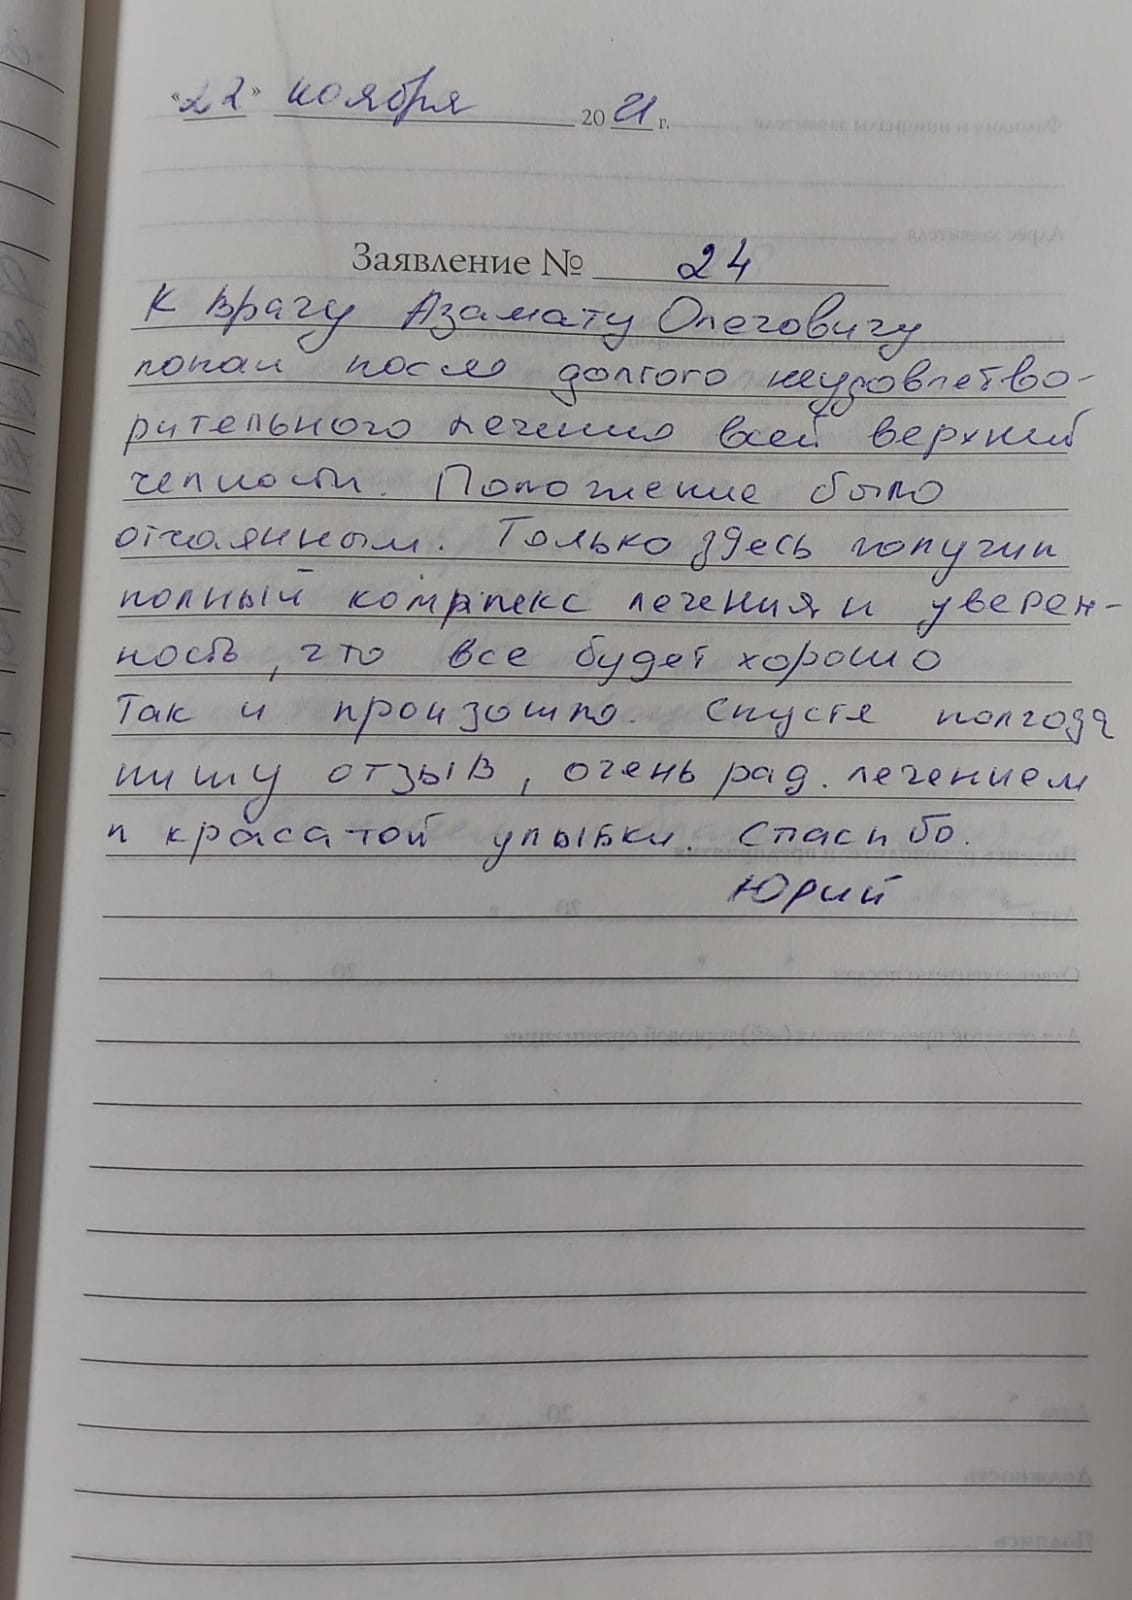 «22» ноября 2021 г.
Заявление № 24
К врачу Азамату Олеговичу
попал после долгого неудовлетво-
рительного лечения всей верхней
челюсти. Положение было
отчаянным. Только здесь получил
полный комплекс лечения и уверен-
ность, что все будет хорошо
Так и произошло. Спустя полгода
пишу отзыв, очень рад. лечением
и красатой улыбки. Спасибо.
Юрий